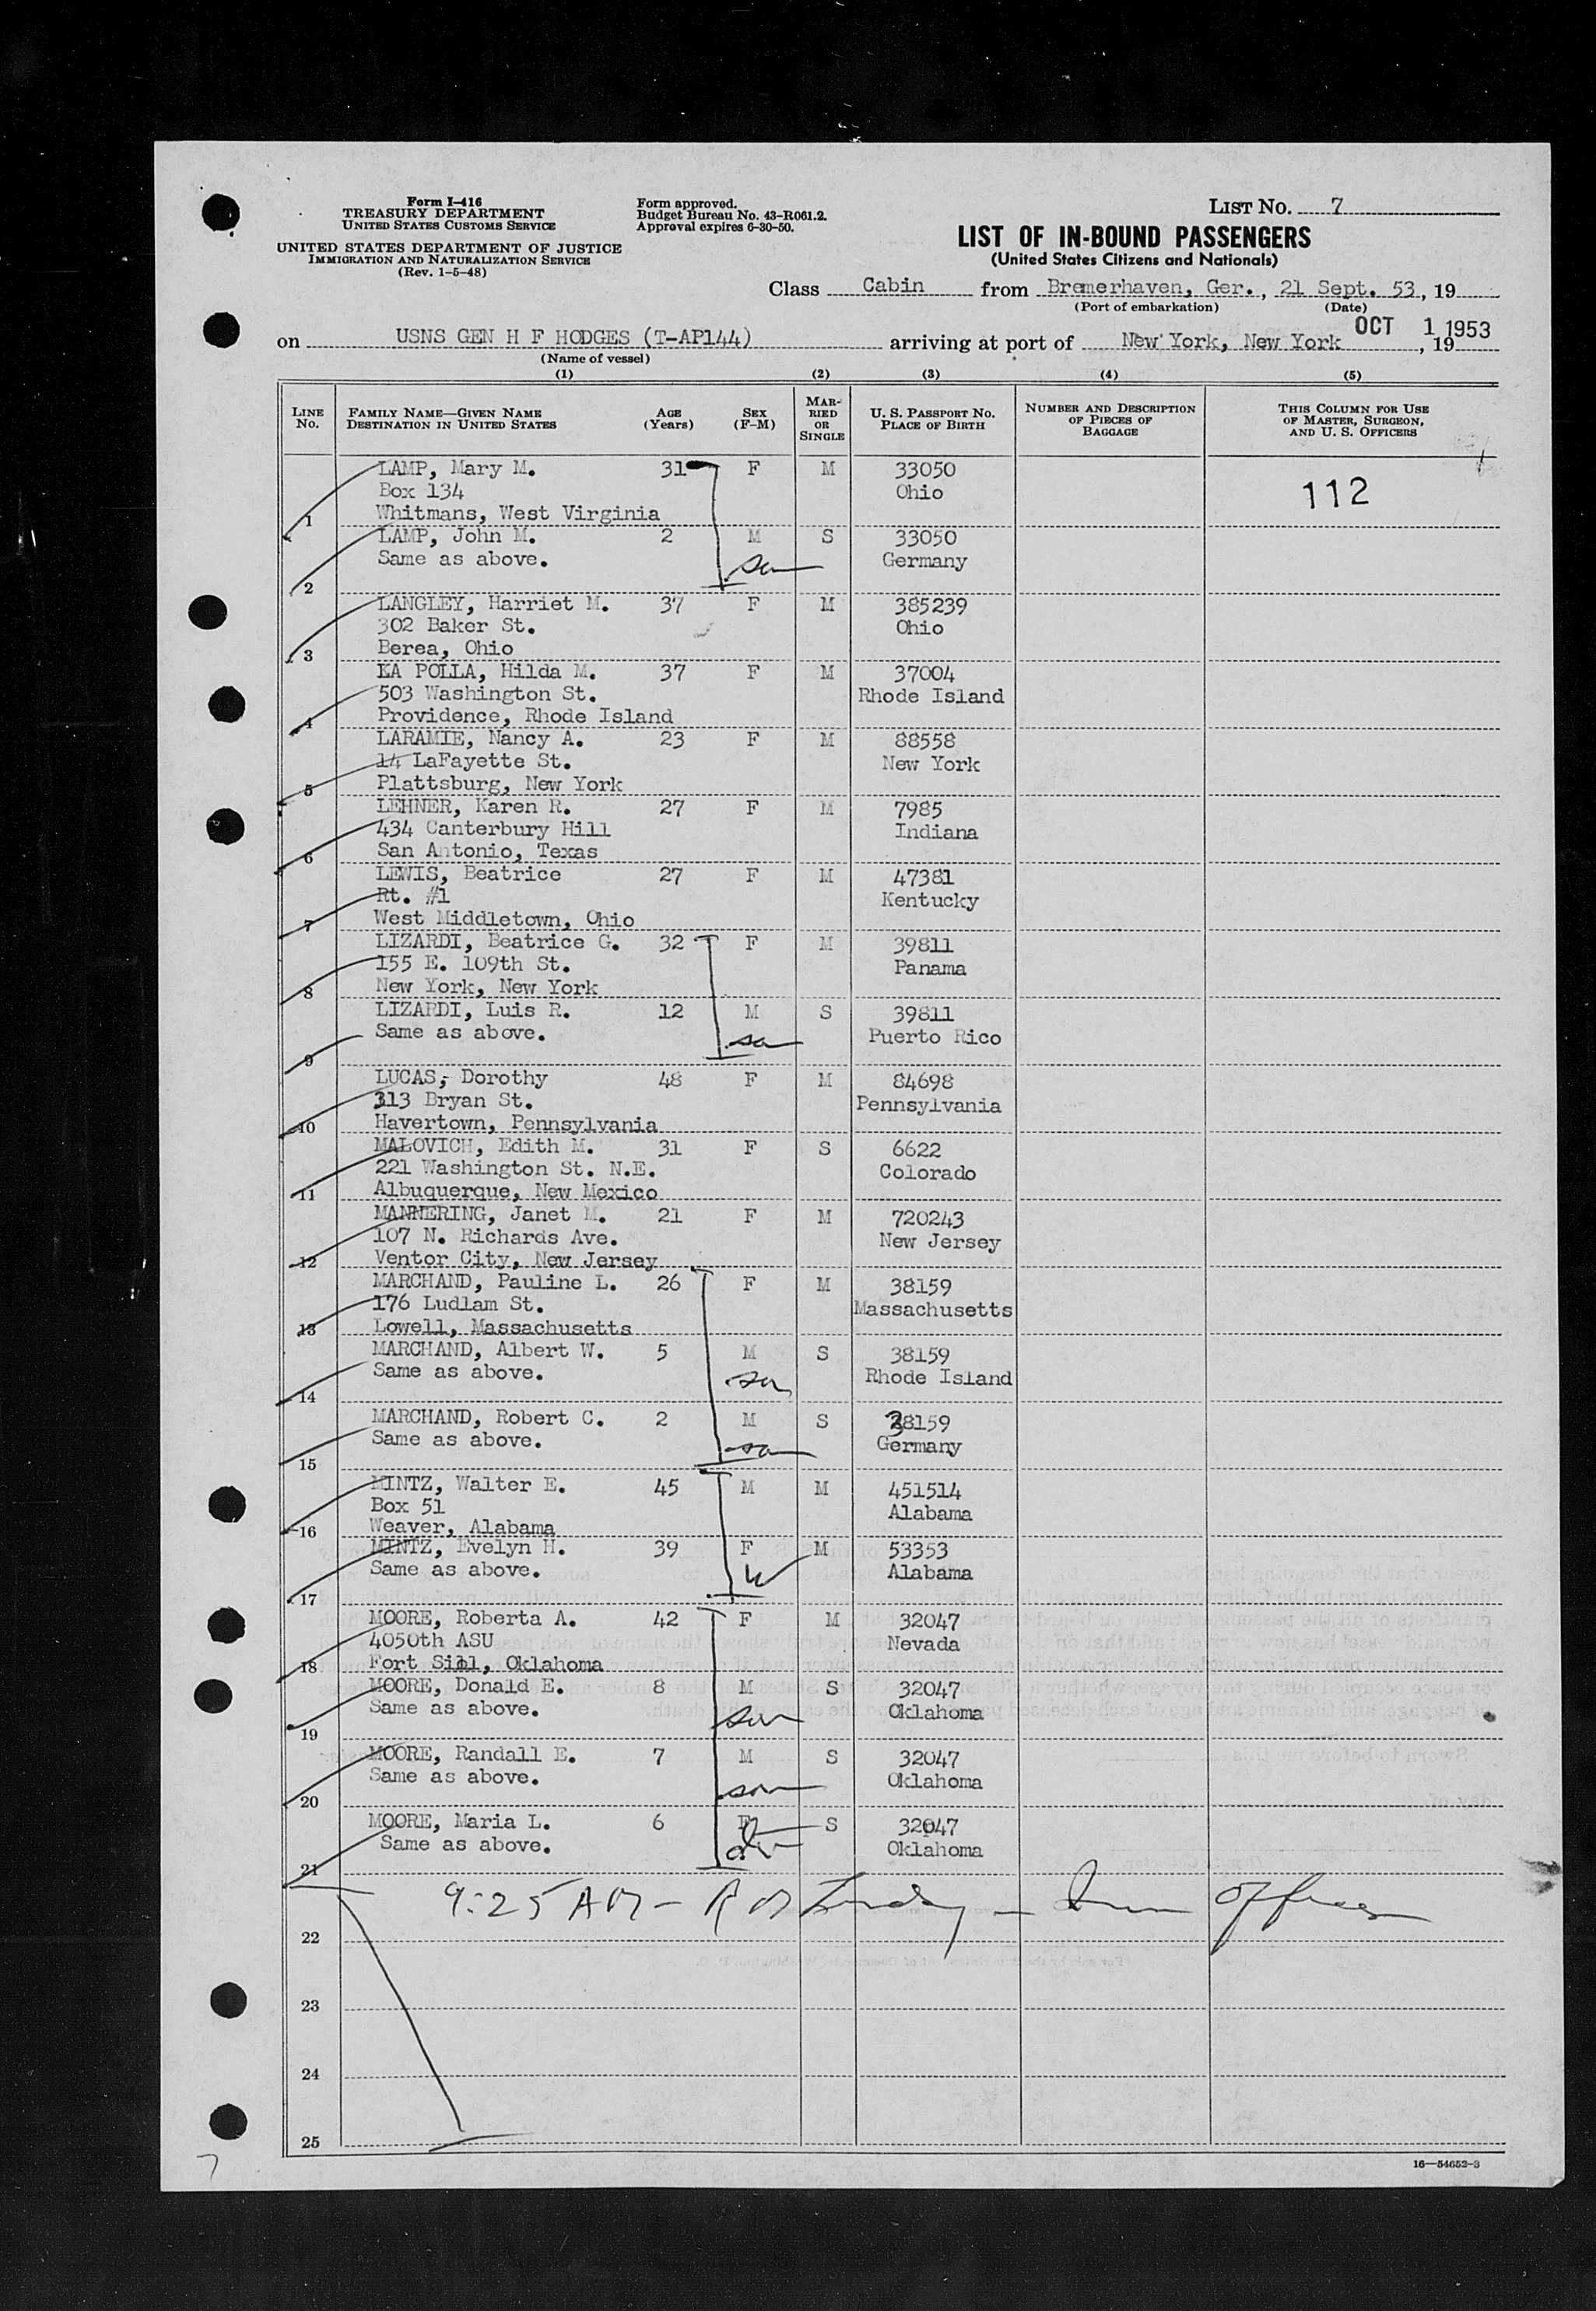 Form I-416
TREASURY DEPARTMENT
UNITED STATES CUSTOMS SERVICE
UNITED STATES DEPARTMENT OF JUSTICE
IMMIGRATION AND NATURALIZATION SERVICE
(Rev. 1-5-48)
Form approved.
Budget Bureau No. 43-R061.2.
Approval expires 6-30-50.
LIST NO. 7
LIST OF IN-BOUND PASSENGERS
(United States Citizens and Nationals)
Class Cabin from Bremerhaven, Ger., 21 Sept. 53, 19
(Port of embarkation) (Date)
on USNS GEN H F HODGES (T-AP144) arriving at port of New York, New York OCT 1 1953, 19
(Name of vessel)
(1) (2) (3) (4) (5)
LINE No. FAMILY NAME—GIVEN NAME DESTINATION IN UNITED STATES AGE (Years) SEX (F-M) MARRIED OR SINGLE U. S. PASSPORT No. PLACE OF BIRTH NUMBER AND DESCRIPTION OF PIECES OF BAGGAGE THIS COLUMN FOR USE OF MASTER, SURGEON, AND U. S. OFFICERS
LAMP, Mary M. 31 F M 33050
Box 134 Ohio 112
1 Whitmans, West Virginia
LAMP, John M. 2 M S 33050
Same as above. son Germany
2
LANGLEY, Harriet M. 37 F M 385239
302 Baker St. Ohio
3 Berea, Ohio
KA POLLA, Hilda M. 37 F M 37004
503 Washington St. Rhode Island
4 Providence, Rhode Island
LARAMIE, Nancy A. 23 F M 88558
14 LaFayette St. New York
5 Plattsburg, New York
LEHNER, Karen R. 27 F M 7985
434 Canterbury Hill Indiana
6 San Antonio, Texas
LEWIS, Beatrice 27 F M 47381
Rt. #1 Kentucky
7 West Middletown, Ohio
LIZARDI, Beatrice G. 32 F M 39811
155 E. 109th St. Panama
8 New York, New York
LIZARDI, Luis R. 12 M S 39811
Same as above. son Puerto Rico
9
LUCAS, Dorothy 48 F M 84698
313 Bryan St. Pennsylvania
10 Havertown, Pennsylvania
MALOVICH, Edith M. 31 F S 6622
221 Washington St. N.E. Colorado
11 Albuquerque, New Mexico
MANNERING, Janet M. 21 F M 720243
107 N. Richards Ave. New Jersey
12 Ventor City, New Jersey
MARCHAND, Pauline L. 26 F M 38159
176 Ludlam St. Massachusetts
13 Lowell, Massachusetts
MARCHAND, Albert W. 5 M S 38159
Same as above. son Rhode Island
14
MARCHAND, Robert C. 2 M S 38159
Same as above. son Germany
15
MINTZ, Walter E. 45 M M 451514
Box 51 Alabama
16 Weaver, Alabama
MINTZ, Evelyn H. 39 F M 53353
Same as above. W Alabama
17
MOORE, Roberta A. 42 F M 32047
4050th ASU Nevada
18 Fort Sill, Oklahoma
MOORE, Donald E. 8 M S 32047
Same as above. son Oklahoma
19
MOORE, Randall E. 7 M S 32047
Same as above. son Oklahoma
20
MOORE, Maria L. 6 F S 32047
Same as above. Oklahoma
21
9:25 AM - R M
22
23
24
25
16—54652-3
7